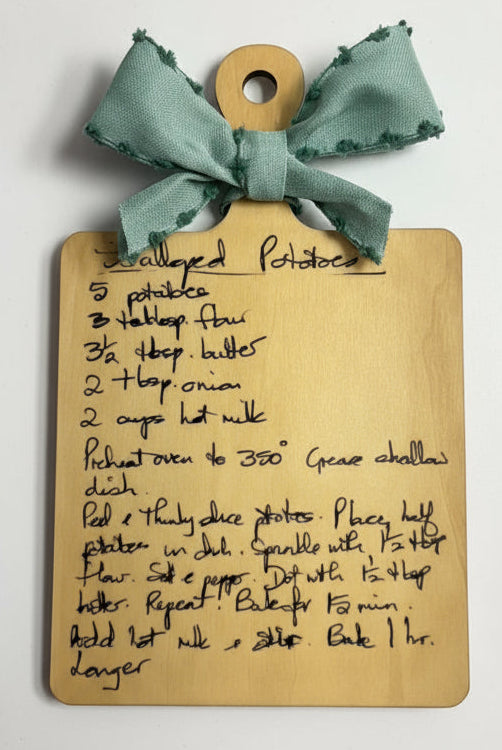 Scalloped Potatoes
5 potatoes
3 tablesp. flour
3½ tbsp. butter
2 tbsp. onion
2 cups hot milk
Preheat oven to 350° Grease shallow
dish.
Peel & thinly slice potatoes. Place half
potatoes in dish. Sprinkle with 1½ tbsp
flour. Salt & pepper. Dot with 1½ tbsp
butter. Repeat. Bake for min.
Add hot milk & stir. Bake 1 hr.
Longer